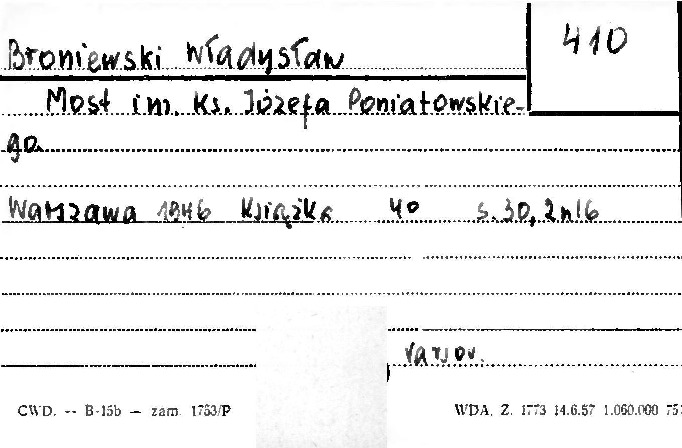 410
Broniewski Władysław
Most im. Ks. Józefa Poniatowskie-
go
Warszawa 1946 Książka 40 s. 30, 2nlb
varsov.
CWD. -- B-15b — zam. 1763/P
WDA. Z. 1773 14.6.57 1.060.000 75